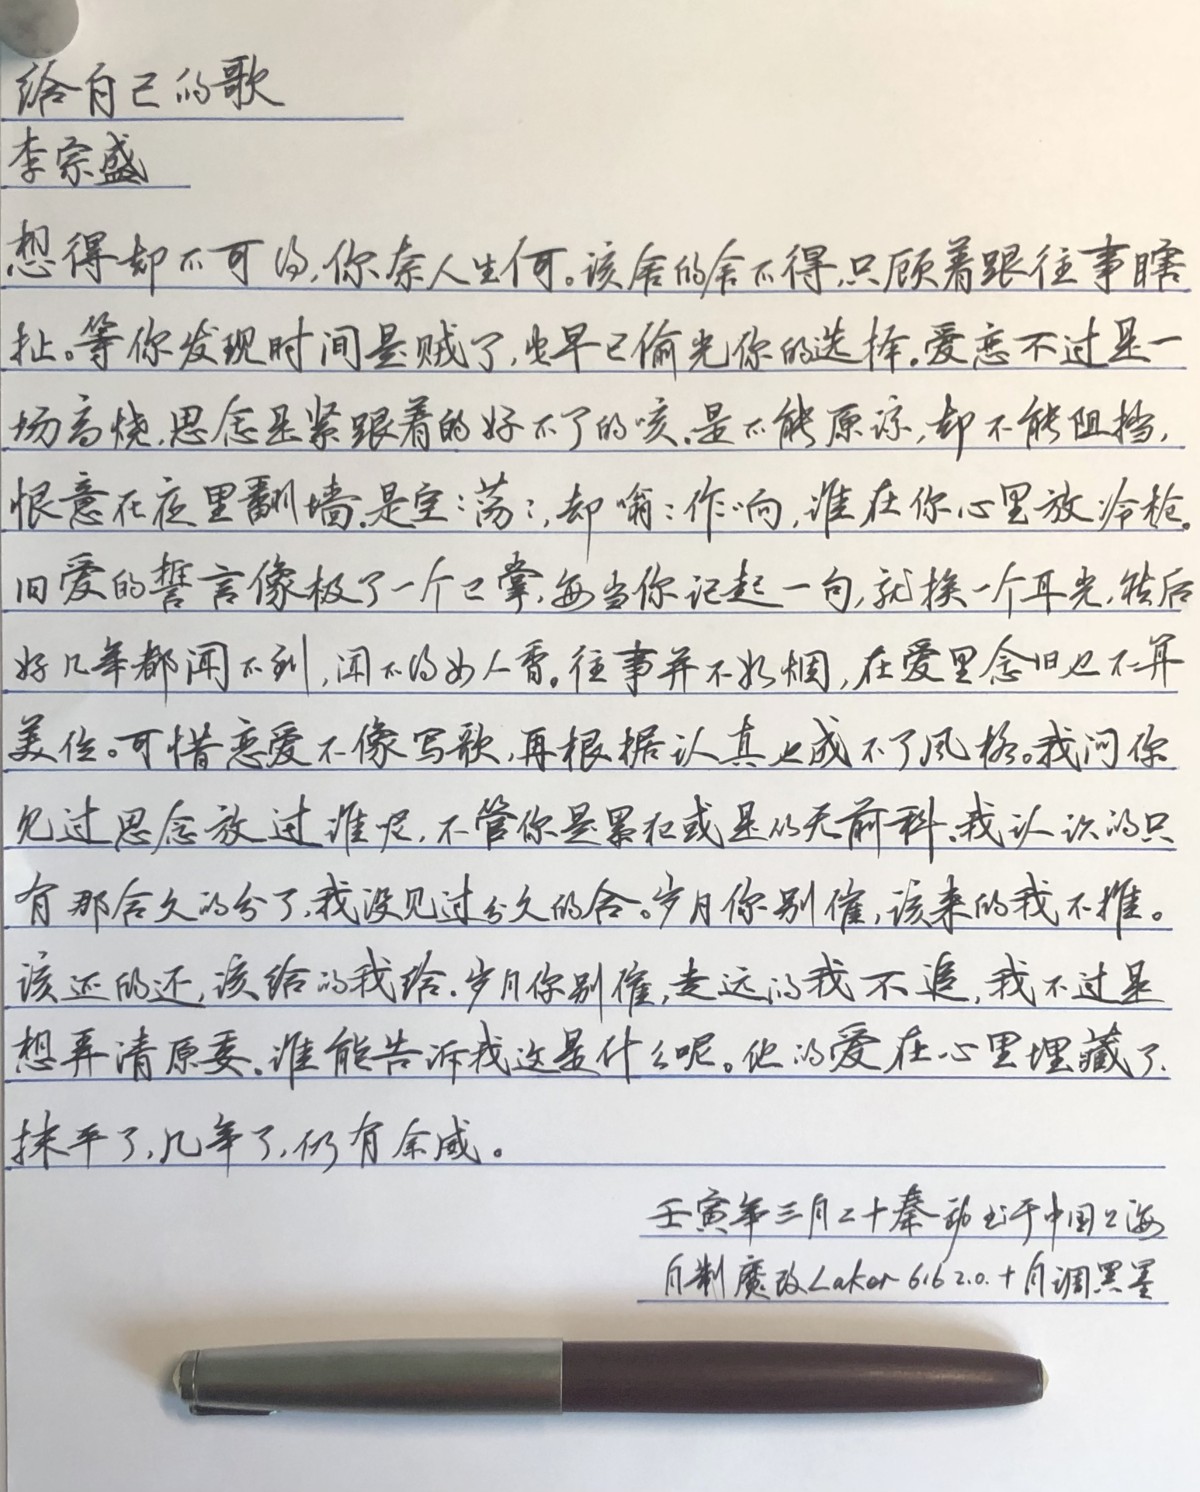 给自己的歌
李宗盛
想得却不可得，你奈人生何。该舍的舍不得，只顾着跟往事瞎
扯。等你发现时间是贼了，它早已偷光你的选择。爱恋不过是一
场高烧，思念是紧跟着的好不了的咳。是不能原谅，却不能阻挡，
恨意在夜里翻墙。是空:荡:，却嗡:作响，谁在你心里放冷枪。
旧爱的誓言像极了一个巴掌，每当你记起一句，就挨一个耳光，然后
好几年都闻不到，闻不得女人香。往事并不如烟，在爱里念旧也不算
美德。可惜恋爱不像写歌，再根据认真也成不了风格。我问你
见过思念放过谁呢，不管你是累犯或是从无前科。我认识的只
有那合久的分了，我没见过分久的合。岁月你别催，该来的我不推。
该还的还，该给的我给。岁月你别催，走远的我不追，我不过是
想弄清原委。谁能告诉我这是什么呢。他的爱在心里埋藏了，
抹平了，几年了，仍有余威。
壬寅年三月二十秦 书于中国上海
自制魔改Laker 616 2.0.+自调黑墨